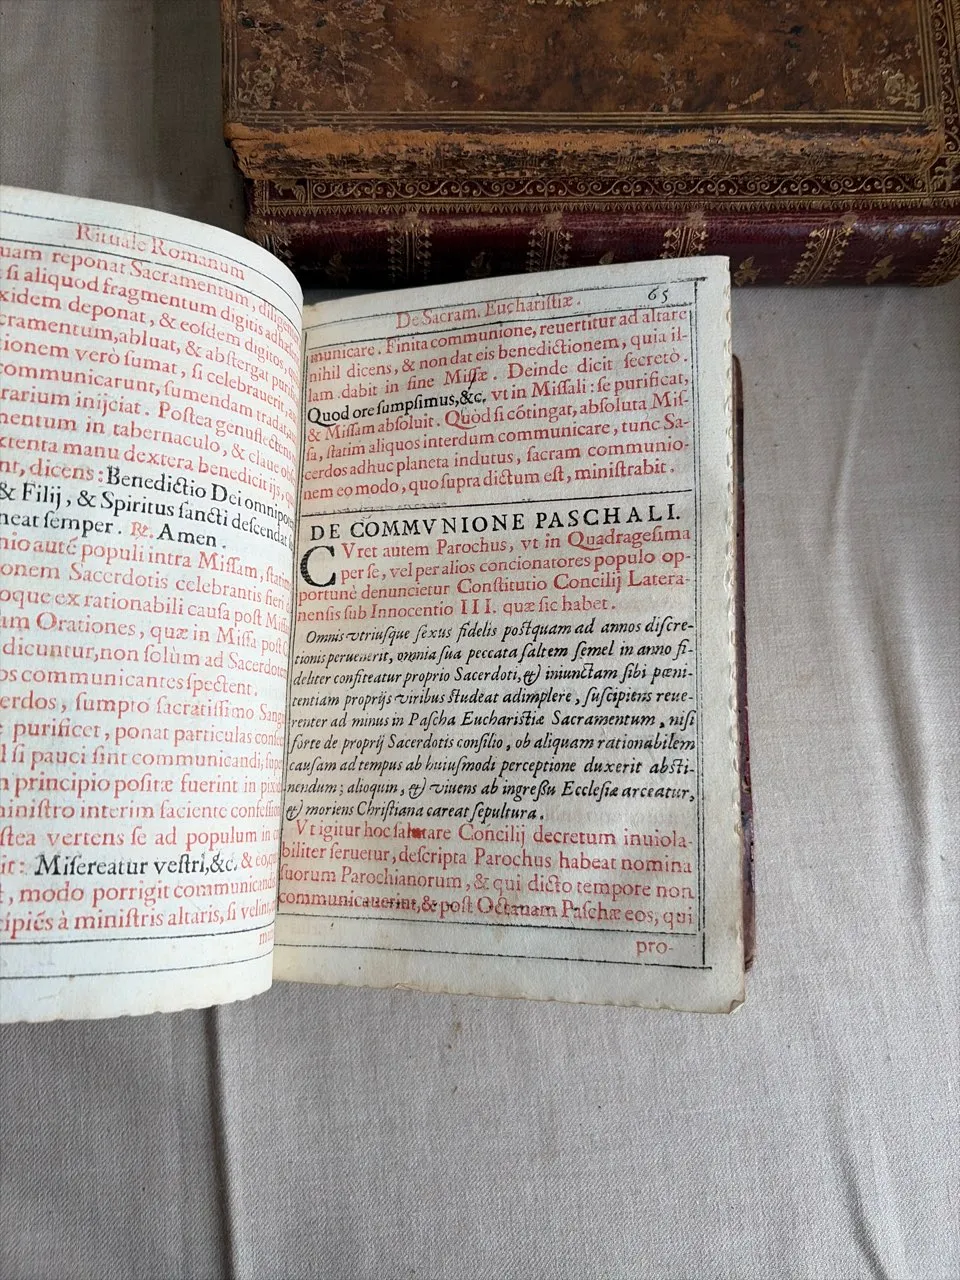 Rituale Romanum
quam reponat Sacramentum,
si aliquod fragmentum digitis
deponat, & eosdem digitos,
abluat, & abstergat
verò sumat, si celebrauerit,
communicarunt, sumendam tradat,
inijciat. Postea genuflectens,
in tabernaculo, & claue
manu dextera benedicit ijs,
dicens: Benedictio Dei
& Filij, & Spiritus sancti descendat
semper. ℟. Amen.
autē populi intra Missam,
Sacerdotis celebrantis fieri
ex rationabili causa post
Orationes, quæ in Missa
dicuntur, non solùm ad
communicantes spectent.
sumpto sacratissimo
purificet, ponat particulas
si pauci sint communicandi,
principio positæ fuerint in
interim faciente
vertens se ad populum in
Misereatur vestri, &c. &
, modo porrigit
à ministris altaris, si velint,
65
De Sacram. Eucharistiæ.
municare. Finita communione, reuertitur ad altare
nihil dicens, & non dat eis benedictionem, quia il-
lam dabit in fine Missæ. Deinde dicit secretò.
Quod ore sumpsimus, &c. vt in Missali: se purificat,
& Missam absoluit. Quòd si cōtingat, absoluta Mis-
sa, statim aliquos interdum communicare, tunc Sa-
cerdos adhuc planeta indutus, sacram communio-
nem eo modo, quo supra dictum est, ministrabit.
DE COMMVNIONE PASCHALI.
CVret autem Parochus, vt in Quadragesima
per se, vel per alios concionatores populo op-
portunè denuncietur Constitutio Concilij Latera-
nensis sub Innocentio III. quæ sic habet.
Omnis vtriusque sexus fidelis postquam ad annos discre-
tionis peruenerit, omnia sua peccata saltem semel in anno fi-
deliter confiteatur proprio Sacerdoti, & iniunctam sibi pœni-
tentiam proprijs viribus studeat adimplere, suscipiens reue-
renter ad minus in Pascha Eucharistiæ Sacramentum, nisi
forte de proprij Sacerdotis consilio, ob aliquam rationabilem
causam ad tempus ab huiusmodi perceptione duxerit absti-
nendum; alioquin, & viuens ab ingressu Ecclesiæ arceatur,
& moriens Christiana careat sepultura.
Vt igitur hoc salutare Concilij decretum inuiola-
biliter seruetur, descripta Parochus habeat nomina
suorum Parochianorum, & qui dicto tempore non
communicauerint, & post Octauam Paschæ eos, qui
pro-